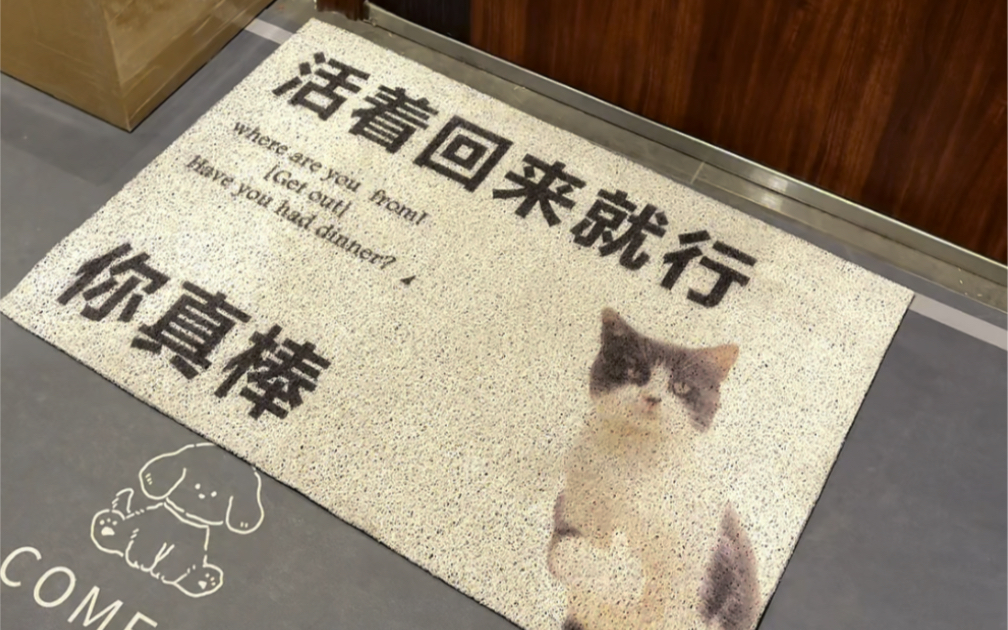 活着回来就行
where are you from!
[Get out]
Have you had dinner?
你真棒
COME